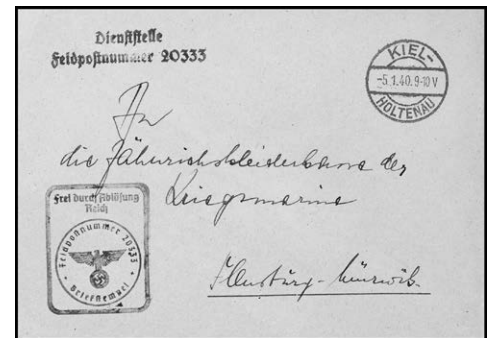 Dienststelle
Feldpostnummer 20333
KIEL-
-5.1.40.9-10V
HOLTENAU
An
die Fähnrichskleiderkasse der
Kriegsmarine
Frei durch Ablösung
Reich
Feldpostnummer 20333
Briefstempel
Flensburg-Mürwik.